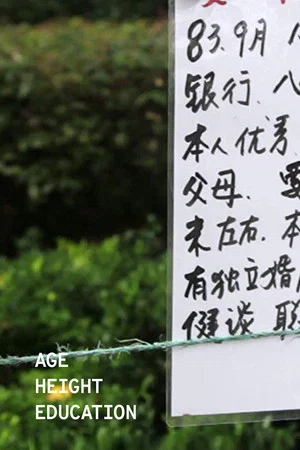 83.9月
银行.八
本人优秀
父母. 要
米左右.本
有独立婚
健谈 联
AGE
HEIGHT
EDUCATION